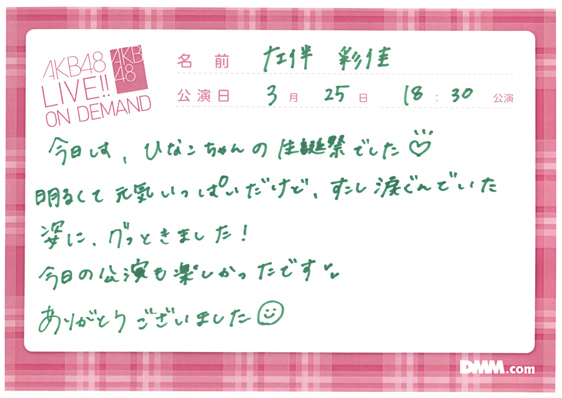 AKB48
LIVE!!
ON DEMAND
AKB
48
名前 左伴 彩佳
公演日 3月 25日 18:30 公演
今日は、ひなこちゃんの生誕祭でした♡
明るくて元気いっぱいだけど、すこし涙ぐんでいた
姿に、グッときました!
今日の公演も楽しかったです♡
ありがとうございました☺
DMM.com